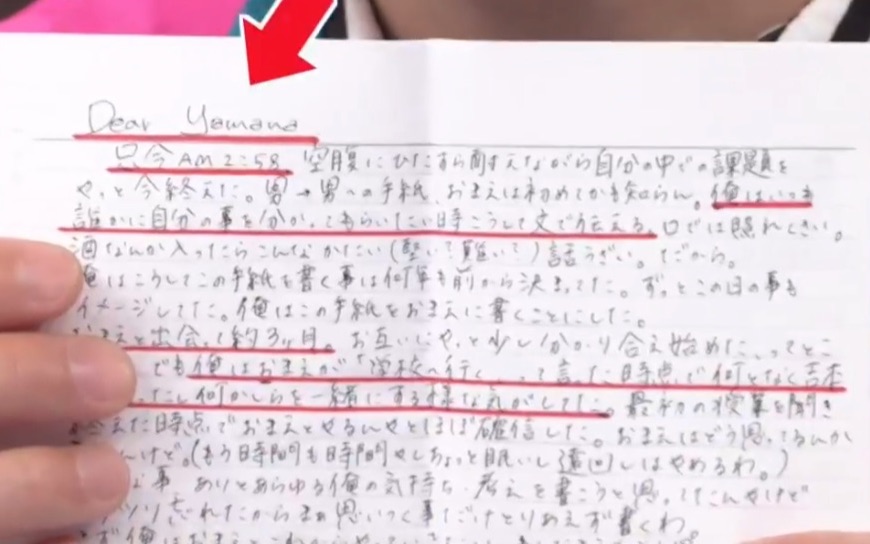 Dear Yamana
只今AM2:58 空腹にひたすら耐えながら自分の中での課題を
やっと今終えた。男→男への手紙、おまえは初めてかも知らん。俺はいつも
誰かに自分の事を分かってもらいたい時こうして文で伝える。口では照れくさい。
酒なんか入ったらこんなかたい(堅いて難いて)話うざい。だから。
俺はこうしてこの手紙を書く事は何年も前から決まってた。ずっとこの日の事も
イメージしてた。俺はこの手紙をおまえに書くことにした。
おまえと出会って約3ヶ月。お互いにやっと少し分かり合え始めた、ってとこ
でも俺はおまえが「学校へ行く、って言った時点で何となく吉本
ったし何かしらを一緒にする様な気がしてた。最初の授業を聞き
終えた時点でおまえとやるんやとほぼ確信した。おまえはどう思ってるんか
んけど。(もう時間も時間やしちょっと眠いし遠回しはやめるわ。)
な事 ありとあらゆる俺の気持ち・考えを書こうと思ってたんやけど
ぞれたからまぁ思いつく事だけとりあえず書くわ。
俺はおまえと